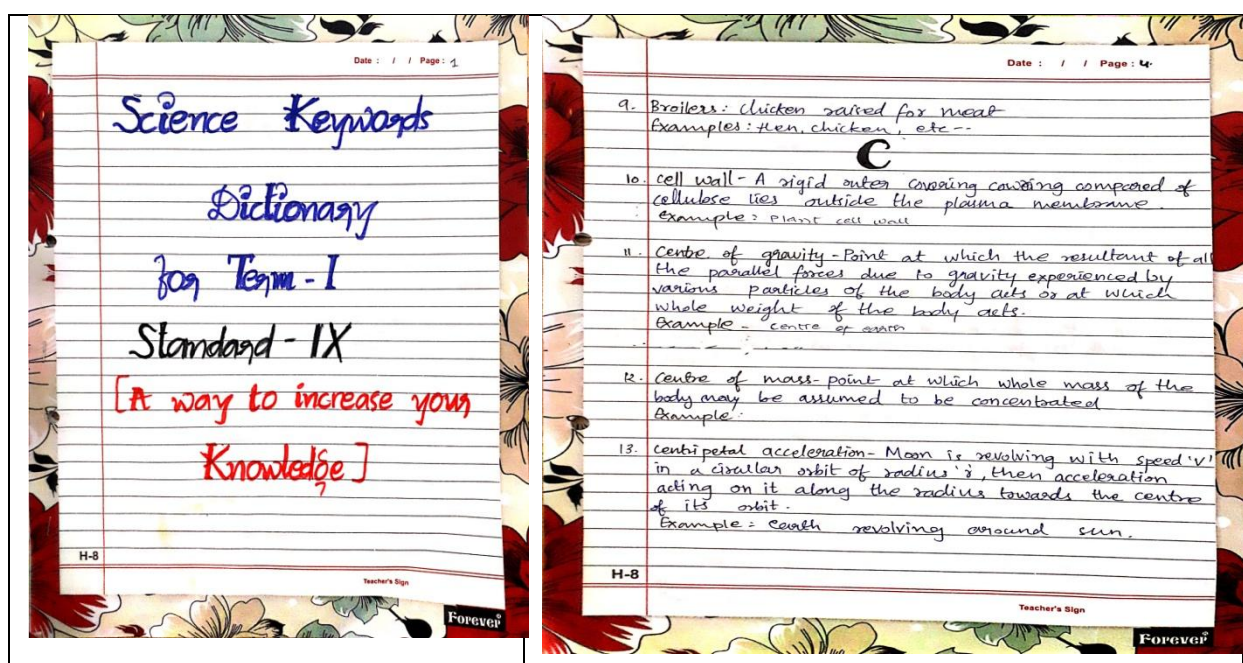 Date : / / Page : 1
Science Keywords
Dictionary
for Term - I
Standard - IX
[A way to increase your
Knowledge]
H-8
Teacher's Sign
Forever
Date : / / Page : 4.
9. Broilers : chicken raised for meat
Examples : Hen, chicken, etc--
C
10. cell wall - A rigid outer covering covering compared of
cellulose lies outside the plasma membrane.
Example : Plant cell wall
11. Centre of gravity - Point at which the resultant of all
the parallel forces due to gravity experienced by
various particles of the body acts or at which
whole weight of the body acts.
Example - centre of earth
12. Centre of mass - point at which whole mass of the
body may be assumed to be concentrated
Example :
13. centripetal acceleration - Moon is revolving with speed 'v'
in a circular orbit of radius 'r', then acceleration
acting on it along the radius towards the centre
of its orbit.
Example : earth revolving around sun.
H-8
Teacher's Sign
Forever